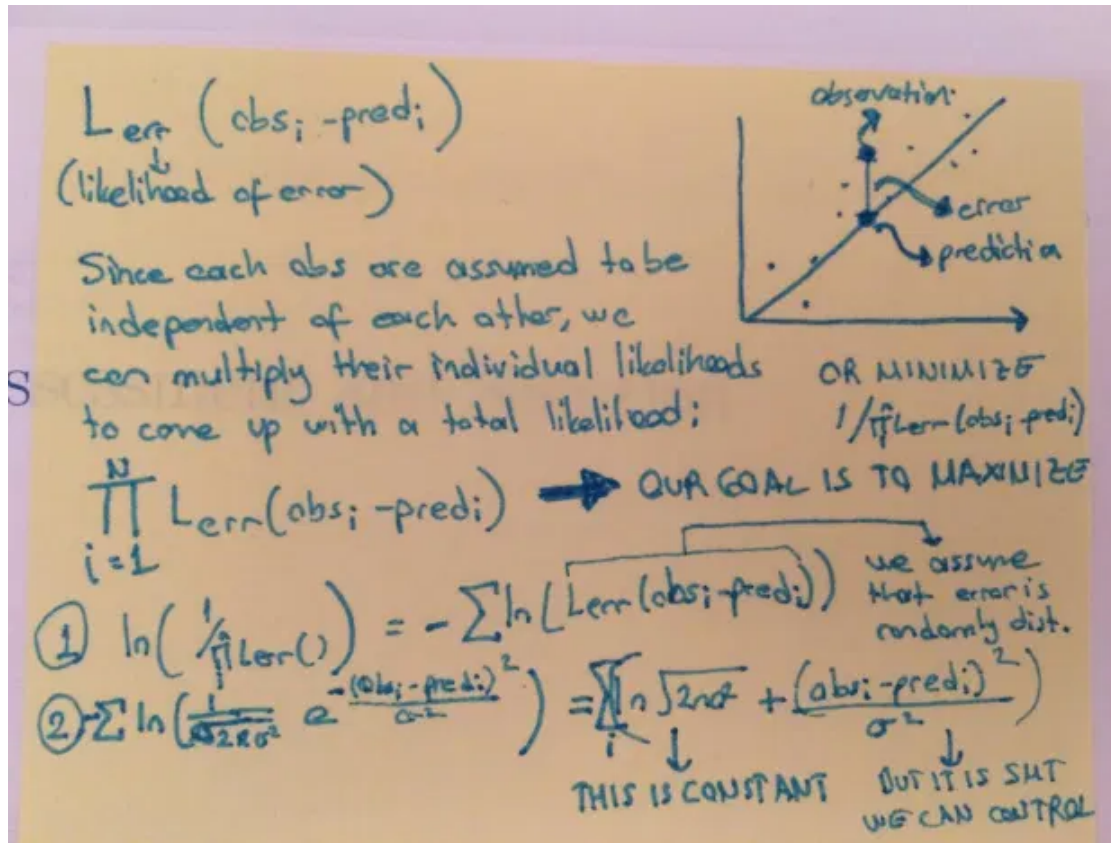 L err (obs i - pred i)
(likelihood of error)
observation
error
prediction
Since each obs are assumed to be
independent of each other, we
can multiply their individual likelihoods
to come up with a total likelihood:
OR MINIMIZE
1/∏ Lerr (obs i - pred i)
N
∏ Lerr (obs i - pred i) → OUR GOAL IS TO MAXIMIZE
i=1
① ln( 1/∏ Lerr() ) = -∑ ln( Lerr (obs i - pred i))
we assume
that error is
randomly dist.
② -∑ ln( 1/√2πσ² e^-(obs i - pred i)²/σ² ) = ∑ ln √2πσ² + (obs i - pred i)²/σ² )
i
THIS IS CONSTANT
BUT IT IS SMT
WE CAN CONTROL